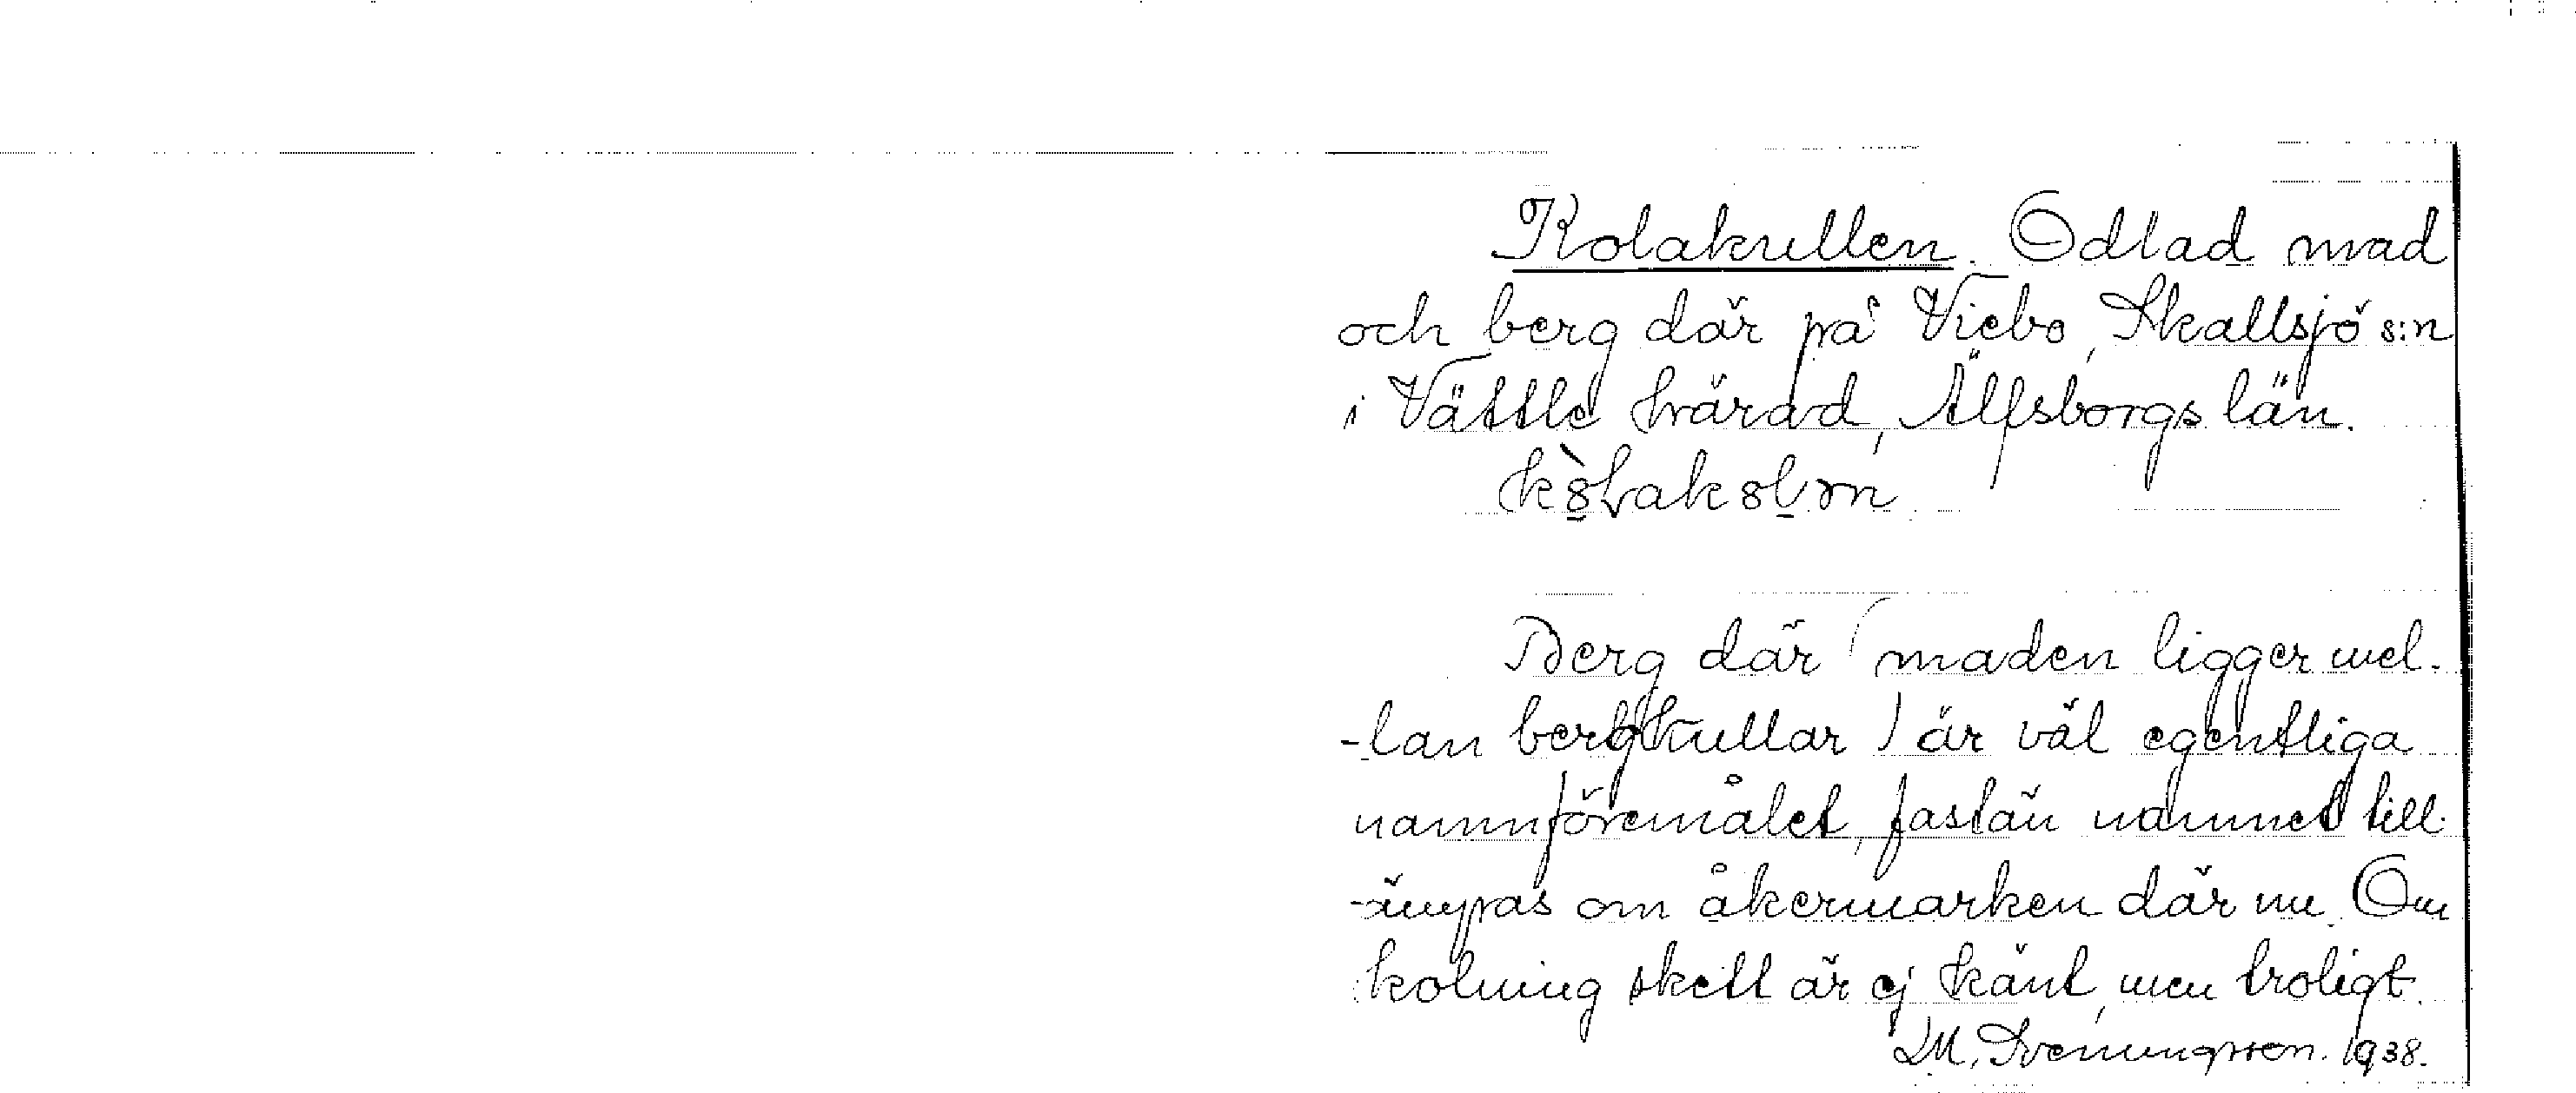 Kolakullen. Odlad mad
och berg där på Viebo, Skallsjö s:n
i Vättle härad, Älfsborgs län.
Berg där (maden ligger mel-
-lan bergkullar) är väl egentliga
namnföremålet, fastän namnet till-
-ämpas om åkermarken där nu. Om
kolning skett är ej känt, men troligt.
M. Sveningsson. 1938.